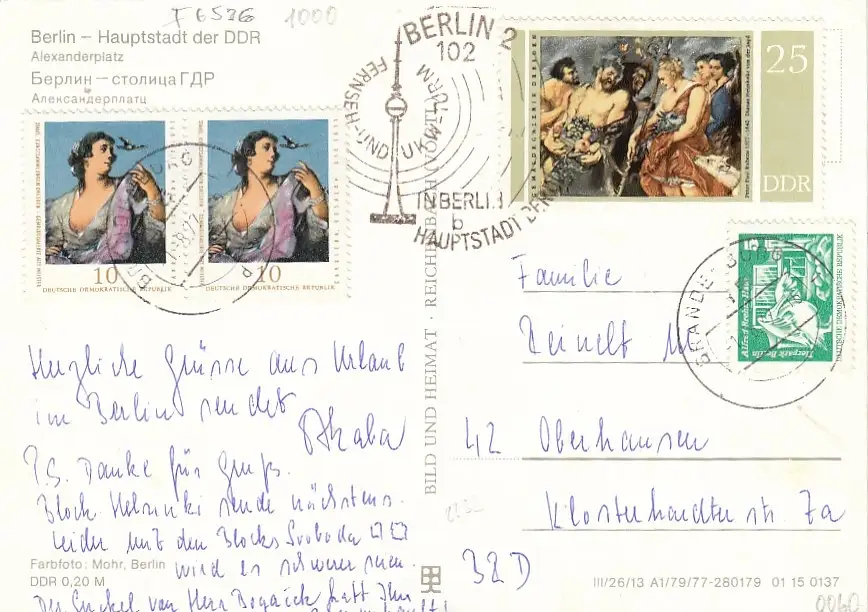 F6526 1000
Berlin – Hauptstadt der DDR
Alexanderplatz
Берлин – столица ГДР
Александерплатц
BERLIN 2
102
FERNSEH-UND UKW-TURM
IN BERLIN
b
HAUPTSTADT
25
DDR
10
DEUTSCHE DEMOKRATISCHE REPUBLIK
10
DEUTSCHE DEMOKRATISCHE REPUBLIK
BRANDE-BURG
Tierpark Berlin
DEUTSCHE DEMOKRATISCHE REPUBLIK
BILD UND HEIMAT · REICHENBACH (VOGTL)
Familie
Reinelt M
42 Oberhausen
Klosterhardter str. 7a
32 D
Herzliche Grüsse aus Urlaub
im Berlin sendet
P.S. Danke für Gruß.
Block Helsinki sende nächstens.
Leider mit den Blocks Svoboda
wird es schwer sein.
Der Enkel von Herr
Farbfoto: Mohr, Berlin
DDR 0,20 M
III/26/13 A1/79/77-280179 01 15 0137
0060